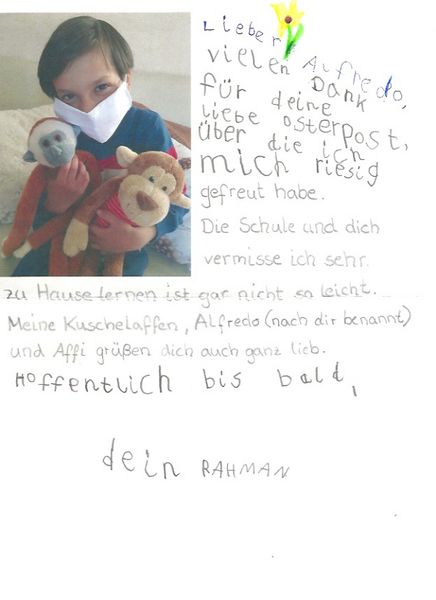 Lieber Alfredo,
vielen Dank
für deine
liebe Osterpost,
über die ich
mich riesig
gefreut habe.
Die Schule und dich
vermisse ich sehr.
zu Hause lernen ist gar nicht so leicht.
Meine Kuschelaffen, Alfredo (nach dir benannt)
und Affi grüßen dich auch ganz lieb.
Hoffentlich bis bald,
dein RAHMAN